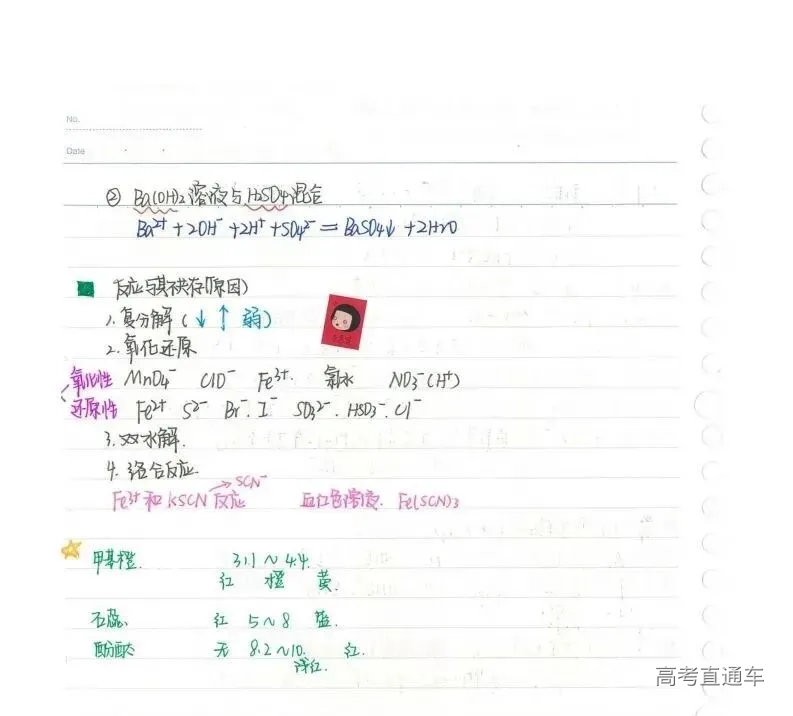 No.
Date
② Ba(OH)₂溶液与H₂SO₄混合
Ba²⁺+2OH⁻+2H⁺+SO₄²⁻=BaSO₄↓+2H₂O
反应与其不共存(原因)
1.复分解(↓ ↑ 弱)
2.氧化还原
氧化性 MnO₄⁻ ClO⁻ Fe³⁺. 氯水 NO₃⁻(H⁺)
还原性 Fe²⁺ S²⁻ Br⁻. I⁻ SO₃²⁻. HSO₃⁻. Cl⁻
3.双水解.
4.络合反应.
Fe³⁺和KSCN反应 →SCN⁻ 血红色溶液. Fe(SCN)₃
甲基橙. 3.1~4.4.
红 橙 黄.
石蕊. 红 5~8 蓝.
酚酞 无 8.2~10. 红.
浅红.
高考直通车